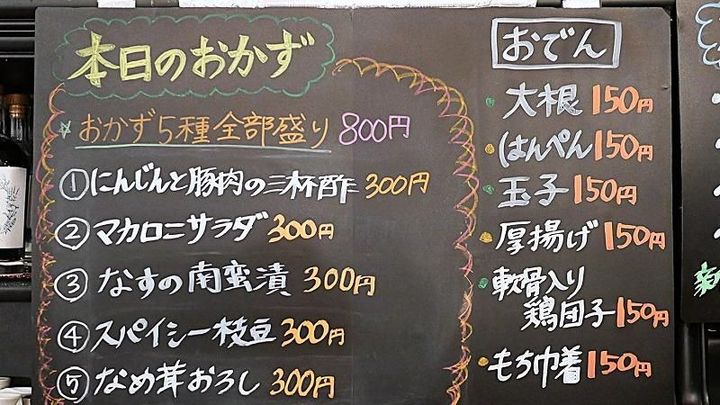 本日のおかず
☆おかず5種全部盛り 800円
①にんじんと豚肉の三杯酢 300円
②マカロニサラダ 300円
③なすの南蛮漬 300円
④スパイシー枝豆 300円
⑤なめ茸おろし 300円
おでん
大根 150円
はんぺん 150円
玉子 150円
厚揚げ 150円
軟骨入り
鶏団子 150円
もち巾着 150円